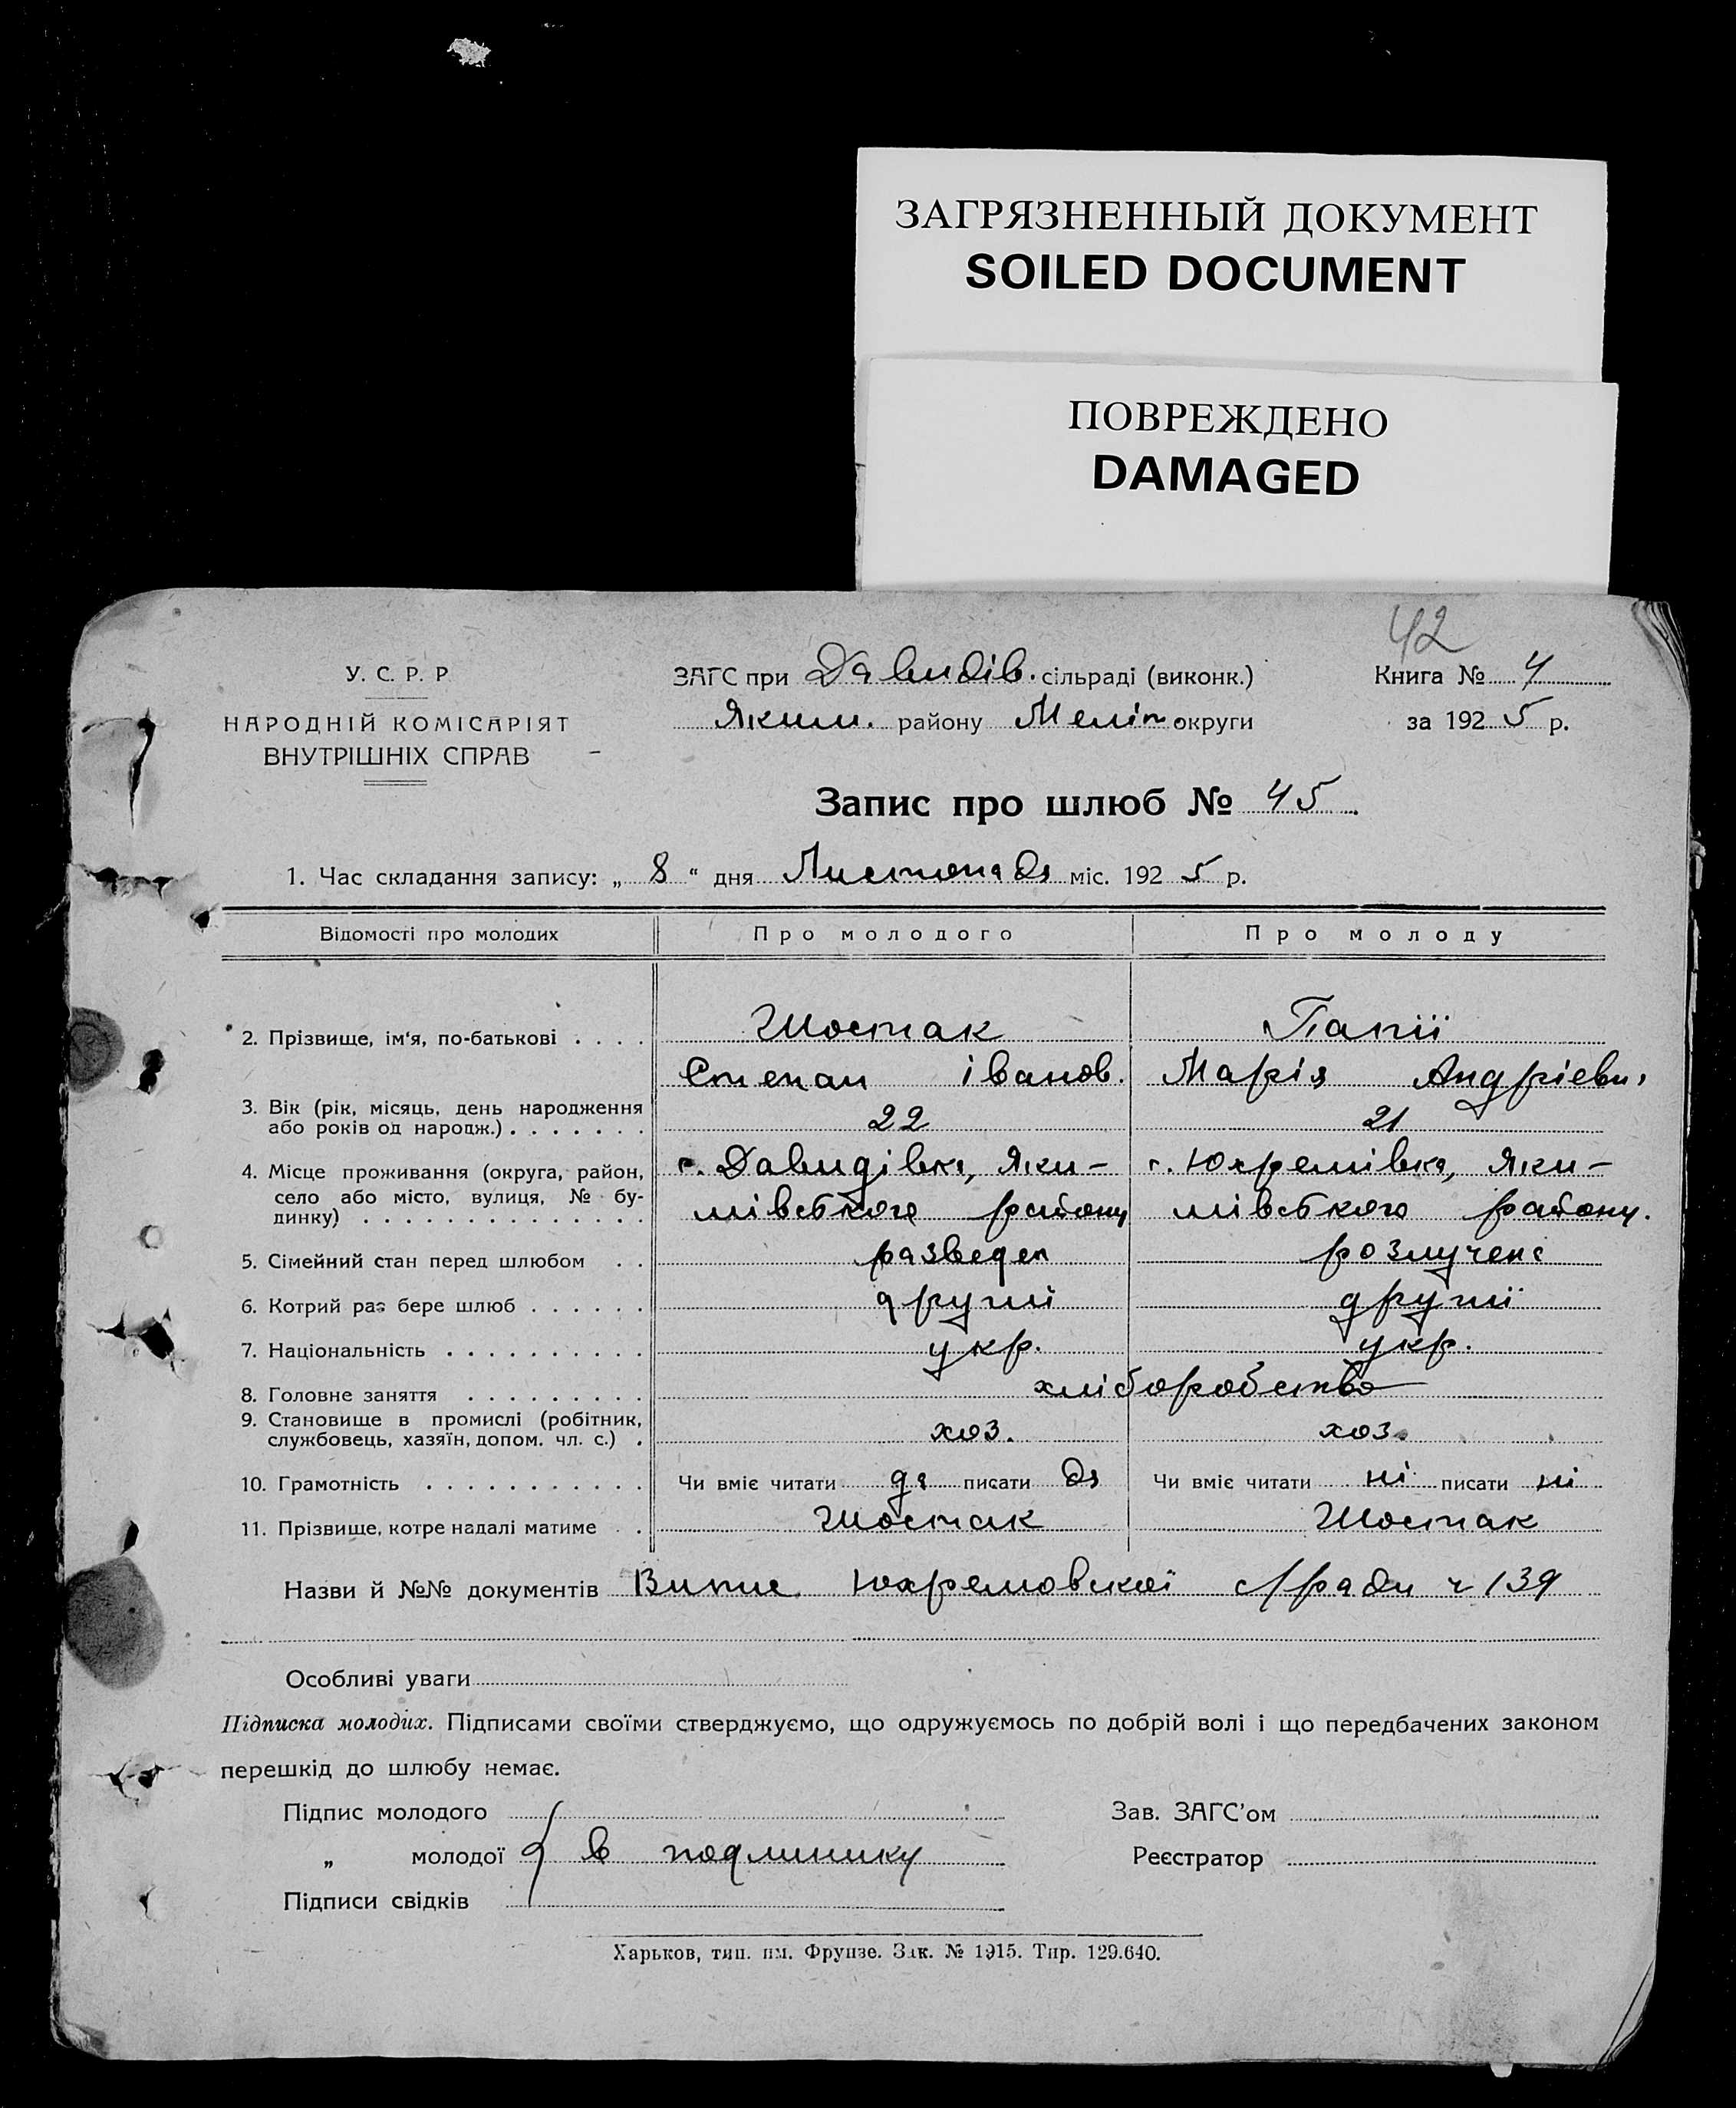 ЗАГРЯЗНЕННЫЙ ДОКУМЕНТ
SOILED DOCUMENT
ПОВРЕЖДЕНО
DAMAGED
42
У. С. Р. Р
НАРОДНІЙ КОМІСАРІЯТ
ВНУТРІШНІХ СПРАВ
ЗАГС при Давидів. сільраді (виконк.)
Яким. району Меліт округи
Книга № 4
за 1925 р.
Запис про шлюб № 45
1. Час складання запису: „ 8 “ дня Листопада міс. 1925 р.
Відомості про молодих Про молодого Про молоду
2. Прізвище, ім'я, по-батькові . . . . Шостак Папії
Степан іванов. Марія Андрієвн.
3. Вік (рік, місяць, день народження
або років од нарοдж.) . . . . . . . 22 21
4. Місце проживання (округа, район, с. Давидівка, Яки- с. Юхремівка, Яки-
село або місто, вулиця, № бу-
динку) . . . . . . . . . . . . . . мівського району мівського району.
5. Сімейний стан перед шлюбом . . разведен розлучена
6. Котрий раз бере шлюб . . . . . . другиі другиї
7. Національність . . . . . . . . . . укр. укр.
8. Головне заняття . . . . . . . . . хліборобство
9. Становище в промислі (робітник,
службовець, хазяїн, допом. чл. с.) . хоз. хоз.
10. Грамотність . . . . . . . . . . . Чи вміє читати да писати да Чи вміє читати ні писати ні
11. Прізвище, котре надалі матиме . . Шостак Шостак
Назви й №№ документів Випис Юхремовскої с/ради ч 139
Особливі уваги
Підписка молодих. Підписами своїми стверджуємо, що одружуємось по добрій волі і що передбачених законом
перешкід до шлюбу немає.
Підпис молодого Зав. ЗАГС'ом
„ молодої в подлинику Реєстратор
Підписи свідків
Харьков, тип. им. Фрунзе. Зак. № 1915. Тир. 129.640.